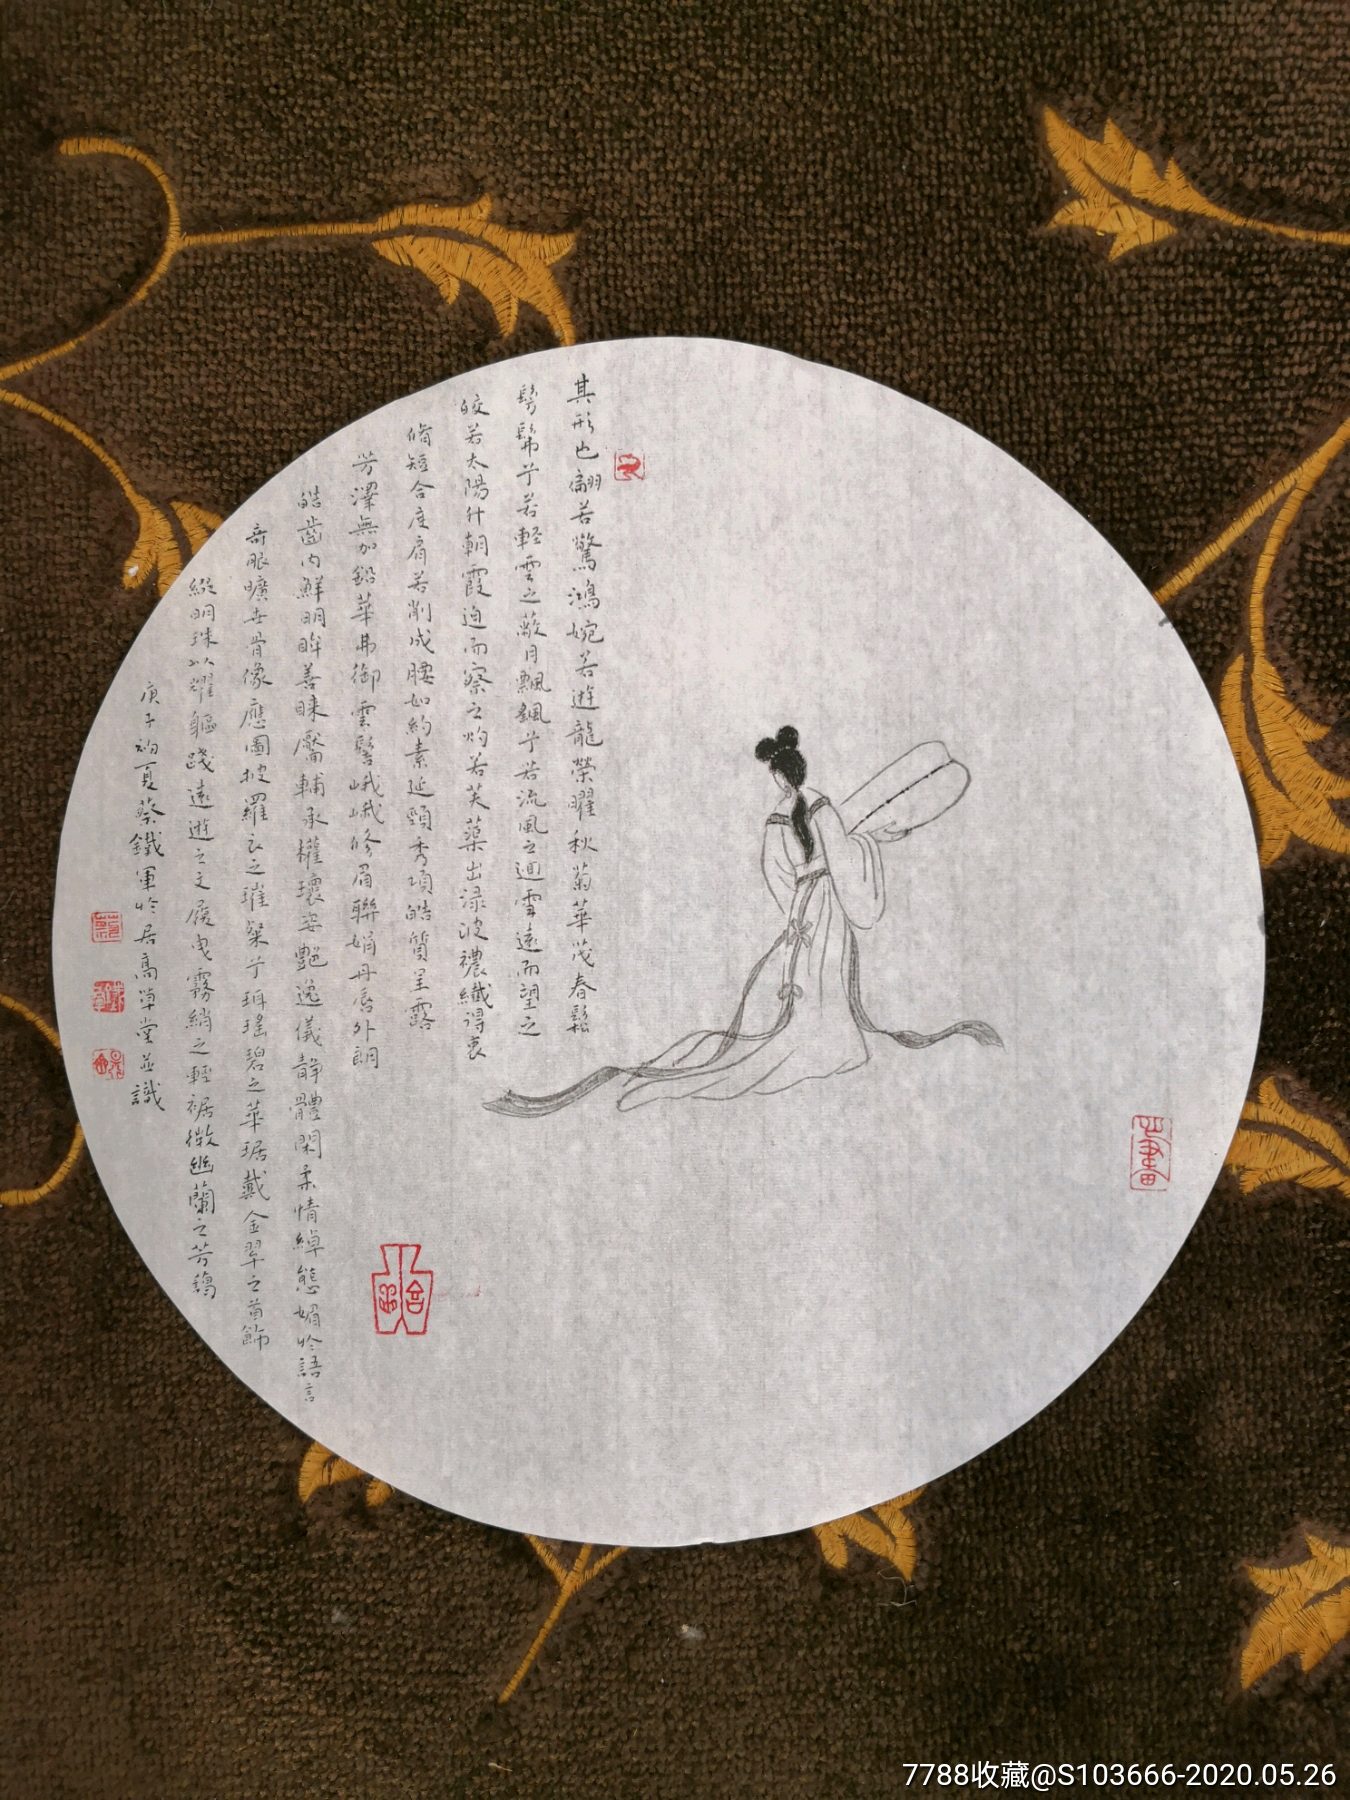 其形也翩若驚鴻婉若遊龍榮曜秋菊華茂春鬆
髣髴兮若輕雲之蔽月飄颻兮若流風之迴雪遠而望之
皎若太陽升朝霞迫而察之灼若芙蕖出淥波襛纖得衷
脩短合度肩若削成腰如約素延頸秀項皓質呈露
芳澤無加鉛華弗御雲髻峨峨修眉聯娟丹唇外朗
皓齒內鮮明眸善睞靨輔承權瓌姿艷逸儀静體閑柔情綽態媚於語言
奇服曠世骨像應圖披羅衣之璀粲兮珥瑤碧之華琚戴金翠之首飾
綴明珠以耀軀踐遠遊之文履曳霧綃之輕裾微幽蘭之芳藹
庚子初夏蔡鐵軍於居高草堂並識
7788收藏@S103666-2020.05.26